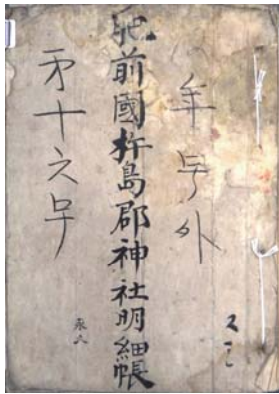 年号外
肥前國杵島郡神社明細帳
第十六号
永久